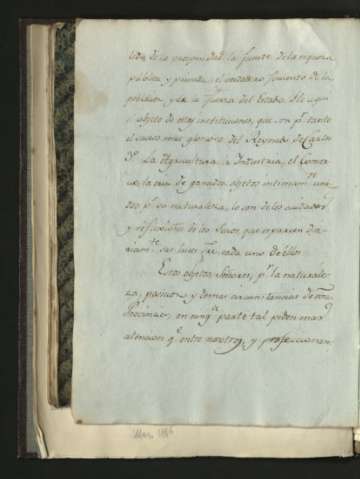 de la prosperidad, la fuente de la riqueza
publica y privada, el verdadero fomento de la
poblacion y la fuerza del Estado. He aqui
el objeto de estas instituciones, que son p.r tanto
el suceso mas glorioso del Reynado de Carlos
3.º La Agricultura, la Industria, el Comer
cio, la cria de ganados, objetos intimam.te uni
dos p.r su naturaleza, lo son de los cuidados
y reflexiones de los Socios que esparcen dia
riam.te sus luces sre. cada uno de ellos.
Estos objetos, Señores, p.r la naturale
za, posicion y demas circunstancias de esta
Provincia, en ning.a parte tal piden mas
atencion q.e entre nosotros, y profesionen
Mss. 1886